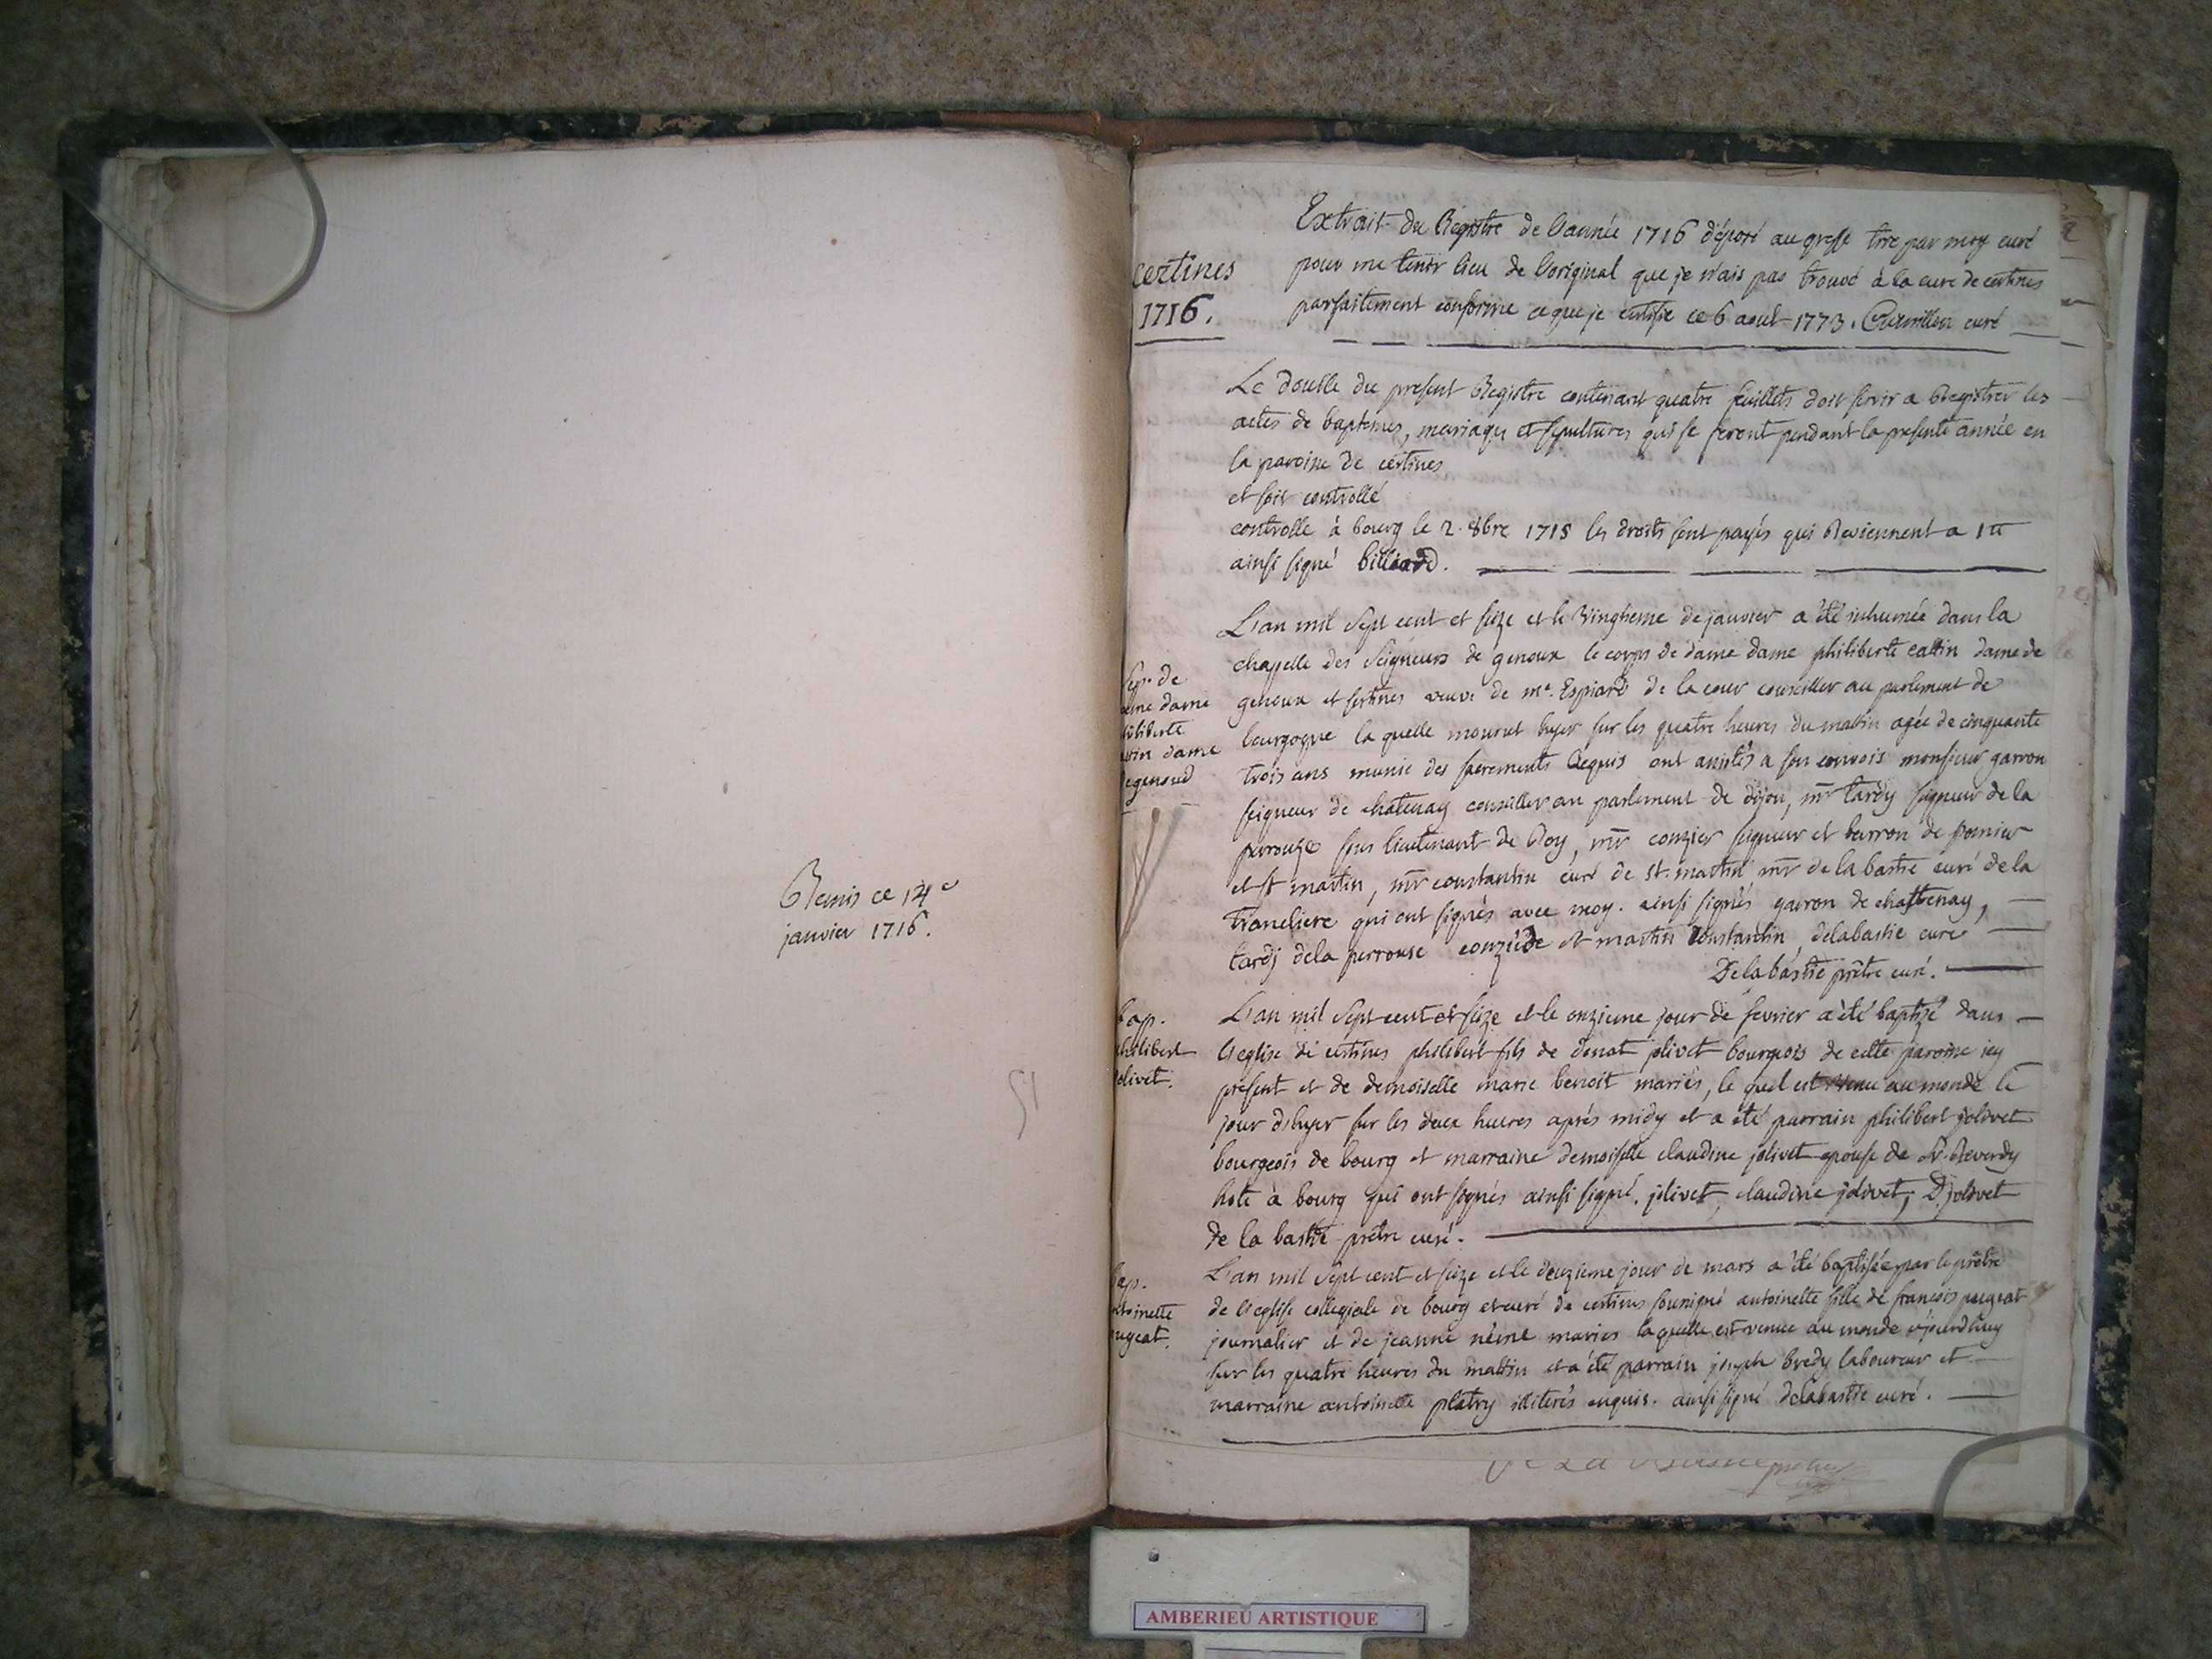 Remis ce 14e
janvier 1716.
certines
1716.
Extrait du Registre de l'année 1716 déposé au greffe tiré par moy curé
pour me tenir lieu de l'original que je n'ais pas trouvé à la cure de certines
parfaitement conforme ce que je certifie ce 6 aout 1773. curé
Le double du present Registre contenant quatre feuillets doit servir a Registrer les
actes de baptemes, mariages et sepultures qui se feront pendant la presente année en
la paroisse de certines
et soit controllé
controlle à bourg le 2. 8bre 1715 les droits sont payés qui Reviennent a 1tt
ainsi signé billiard.
Sep. de
dame dame
philiberte
cattin dame
de genoud
L'an mil sept cent et seize et le vingtieme de janvier a été inhumée dans la
chapelle des seigneurs de genoux le corps de dame dame philiberte cattin dame de
genoux et sertines veuve de mr. Espiard de la cour conseiller au parlement de
bourgogne la quelle mourut hyer sur les quatre heures du matin agée de cinquante
trois ans munie des sacrements Requis ont assistés a son convois monsieur garron
seigneur de chatenay conseiller au parlement de dijon, mr tardy seigneur de la
perrouze sous lieutenant de Roy, mr conzier seigneur et barron de pomier
et st martin, mr constantin curé de st. martin mr de la bastie curé de la
tranclière qui ont signés avec moy. ainsi signés garron de chastenay,
tardj dela perrouse conzié de st martin Constantin, delabastie curé
Delabastie prêtre curé.
bap.
philibert
jolivet.
L'an mil sept cent et seize et le onzieme jour de fevrier a été baptisé dans
l'eglise de certines philibert fils de donat jolivet bourgeois de cette paroisse icy
present et de demoiselle marie benoit mariés, le quel est venu au monde le
jour d'hyer sur les deux heures après midy et a été parrain philibert jolivet
bourgeois de bourg et marraine demoiselle claudine jolivet epouse de Sr. Reverdy
hote à bourg qui ont signés ainsi signé. jolivet, claudine jolivet, D jolivet
de la bastie prêtre curé.
bap.
antoinette
pugeat.
L'an mil sept cent et seize et le deuzieme jour de mars a été baptisée par le prêtre
de l'eglise collegiale de bourg et curé de certines sousigné antoinette fille de françois pugeat
journalier et de jeanne néme mariés laquelle est venue au monde aujourdhuy
sur les quatre heures du mattin et a été parrain joseph bredy laboureur et
marraine antoinette platry illiterés enquis. ainsi signé delabastie curé.
AMBERIEU ARTISTIQUE